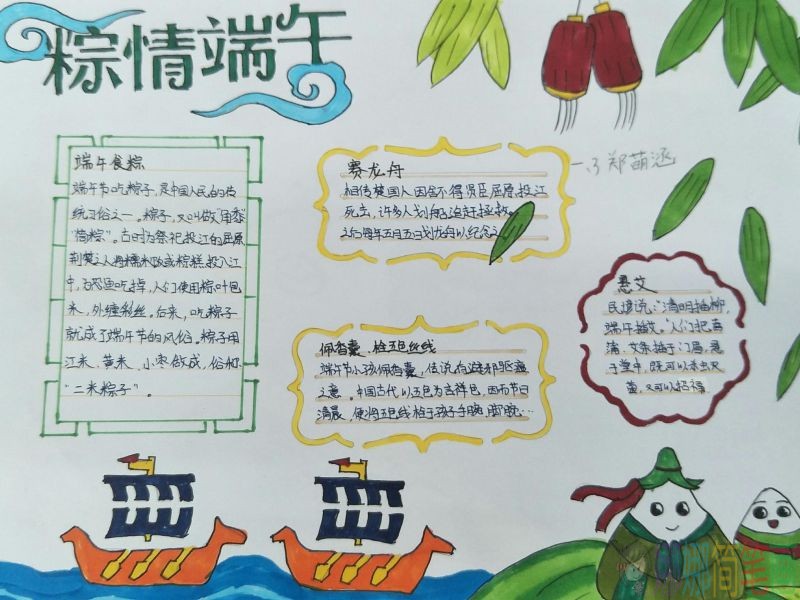 粽情端午
端午食粽
端午节吃粽子，是中国人民的传
统习俗之一。粽子，又叫做“角黍”
“筒粽”。古时为祭祀投江的屈原
荆楚之人用糯米或粽糕投入江
中，恐鱼吃掉，人们使用粽叶包
米，外缠彩丝。后来，吃粽子
就成了端午节的风俗。粽子用
江米、黄米、小枣做成，俗称
“二米粽子”。
赛龙舟
相传楚国人因舍不得贤臣屈原投江
死去，许多人划船追赶拯救。
之后每年五月五日划龙舟以纪念之
一.3郑萌涵
佩香囊、栓五色丝线
端午节小孩佩香囊，传说有避邪驱瘟
之意。中国古代以五色为吉祥色，因而节日
清晨，便将五色线栓于孩子手腕 脚腕…
悬艾
民谚说：“清明插柳，
端午插艾。”人们把菖
蒲、艾条插于门眉，悬
于堂中，既可以杀虫灭
菌，又可以招禄
简笔